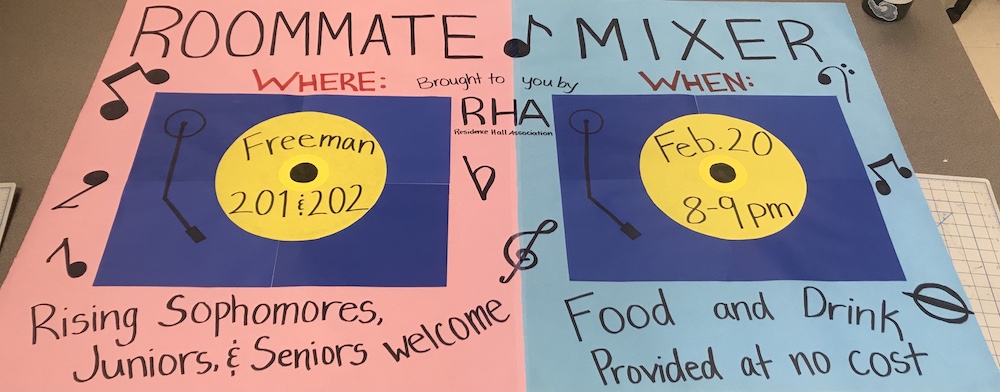 ROOMMATE MIXER
WHERE:
Brought to you by
RHA
Residence Hall Association
WHEN:
Freeman
201 & 202
Feb. 20
8-9 pm
Rising Sophomores,
Juniors, & Seniors welcome
Food and Drink
Provided at no cost